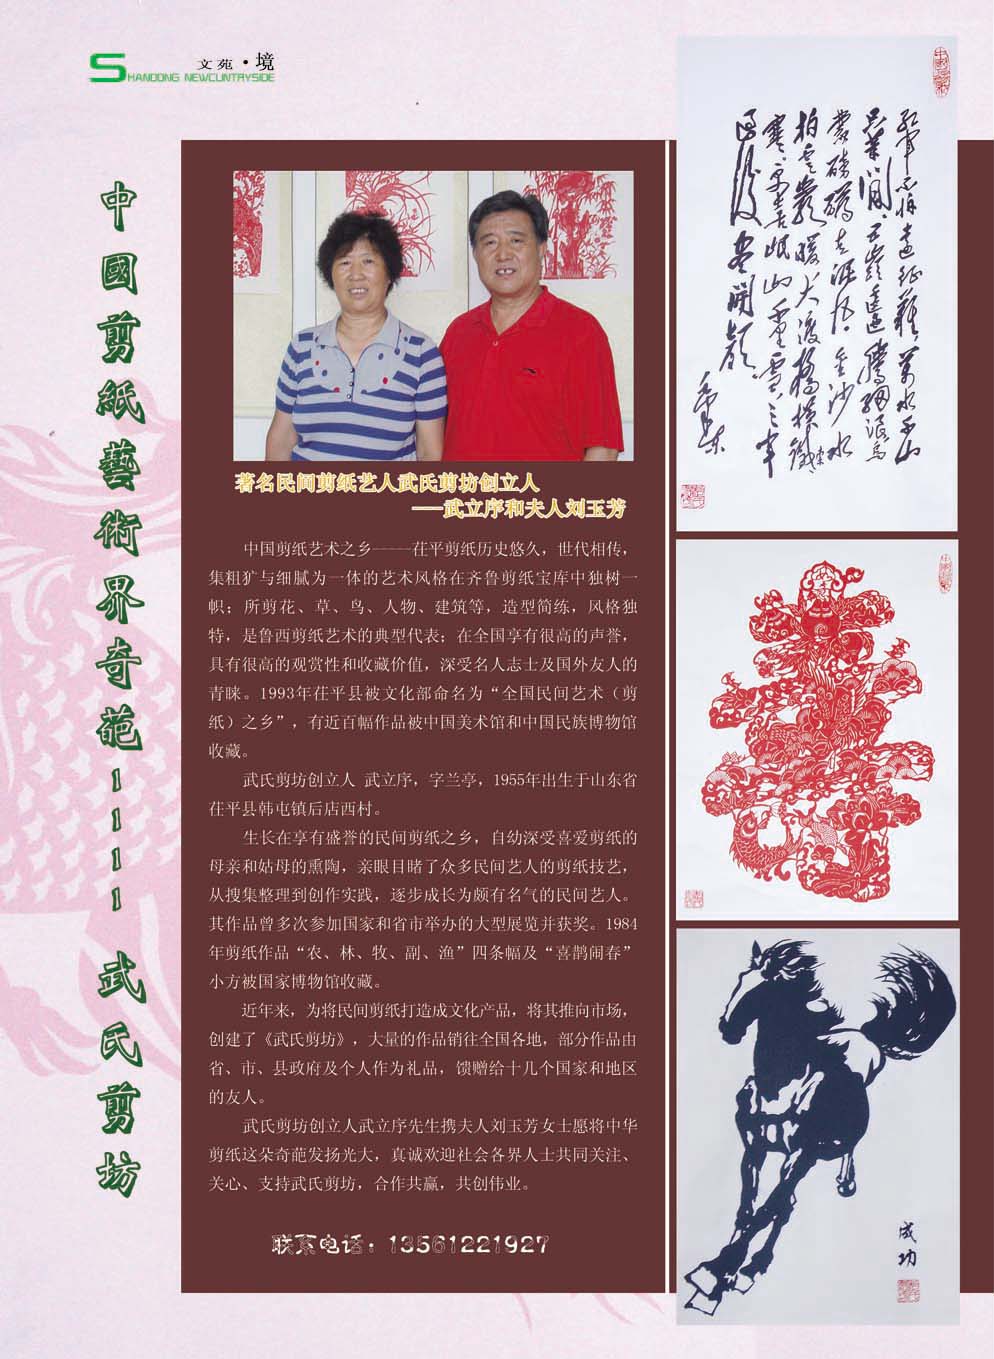 文苑·境
SHANDONG NEWCUNTRYSIDE
中國剪紙藝術界奇葩----武氏剪坊
著名民间剪纸艺人武氏剪坊创立人
——武立序和夫人刘玉芳
中国剪纸艺术之乡-----茌平剪纸历史悠久，世代相传，
集粗犷与细腻为一体的艺术风格在齐鲁剪纸宝库中独树一
帜；所剪花、草、鸟、人物、建筑等，造型简练，风格独
特，是鲁西剪纸艺术的典型代表；在全国享有很高的声誉，
具有很高的观赏性和收藏价值，深受名人志士及国外友人的
青睐。1993年茌平县被文化部命名为“全国民间艺术（剪
纸）之乡”，有近百幅作品被中国美术馆和中国民族博物馆
收藏。
武氏剪坊创立人 武立序，字兰亭，1955年出生于山东省
茌平县韩屯镇后店西村。
生长在享有盛誉的民间剪纸之乡，自幼深受喜爱剪纸的
母亲和姑母的熏陶，亲眼目睹了众多民间艺人的剪纸技艺，
从搜集整理到创作实践，逐步成长为颇有名气的民间艺人。
其作品曾多次参加国家和省市举办的大型展览并获奖。1984
年剪纸作品“农、林、牧、副、渔”四条幅及“喜鹊闹春”
小方被国家博物馆收藏。
近年来，为将民间剪纸打造成文化产品，将其推向市场，
创建了《武氏剪坊》，大量的作品销往全国各地，部分作品由
省、市、县政府及个人作为礼品，馈赠给十几个国家和地区
的友人。
武氏剪坊创立人武立序先生携夫人刘玉芳女士愿将中华
剪纸这朵奇葩发扬光大，真诚欢迎社会各界人士共同关注、
关心、支持武氏剪坊，合作共赢，共创伟业。
联系电话：13561221927
红军不怕远征难，万水千山
只等闲。五岭逶迤腾细浪，乌
蒙磅礴走泥丸。金沙水
拍云崖暖，大渡桥横铁索
寒。更喜岷山千里雪，三军
过后尽开颜。
毛泽东
成功